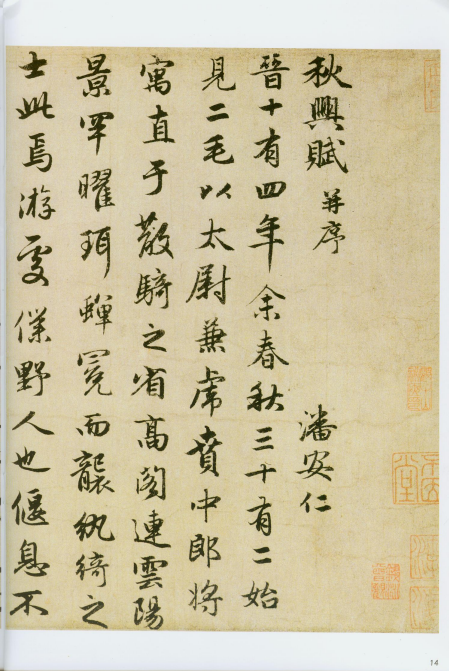 秋興賦 并序 潘安仁
晉十有四年余春秋三十有二始
見二毛以太尉兼虎賁中郎將
寓直于散騎之省高閣連雲陽
景罕曜珥蟬冕而襲紈綺之
士此焉游處僕野人也偃息不
14